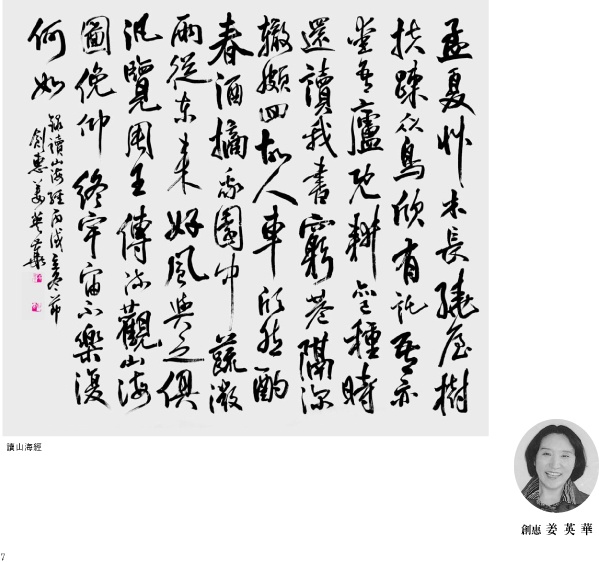 孟夏艸木長繞屋樹
扶疎衆鳥欣有託吾亦
愛吾廬既耕亦已種時
還讀我書窮巷隔深
轍頗回故人車欣然酌
春酒摘我園中蔬微
雨從東來好風與之俱
汎覽周王傳流觀山海
圖俛仰終宇宙不樂復
何如
錄讀山海經丙戌立冬節
創惠 姜英華
讀山海經
創惠 姜英華
7